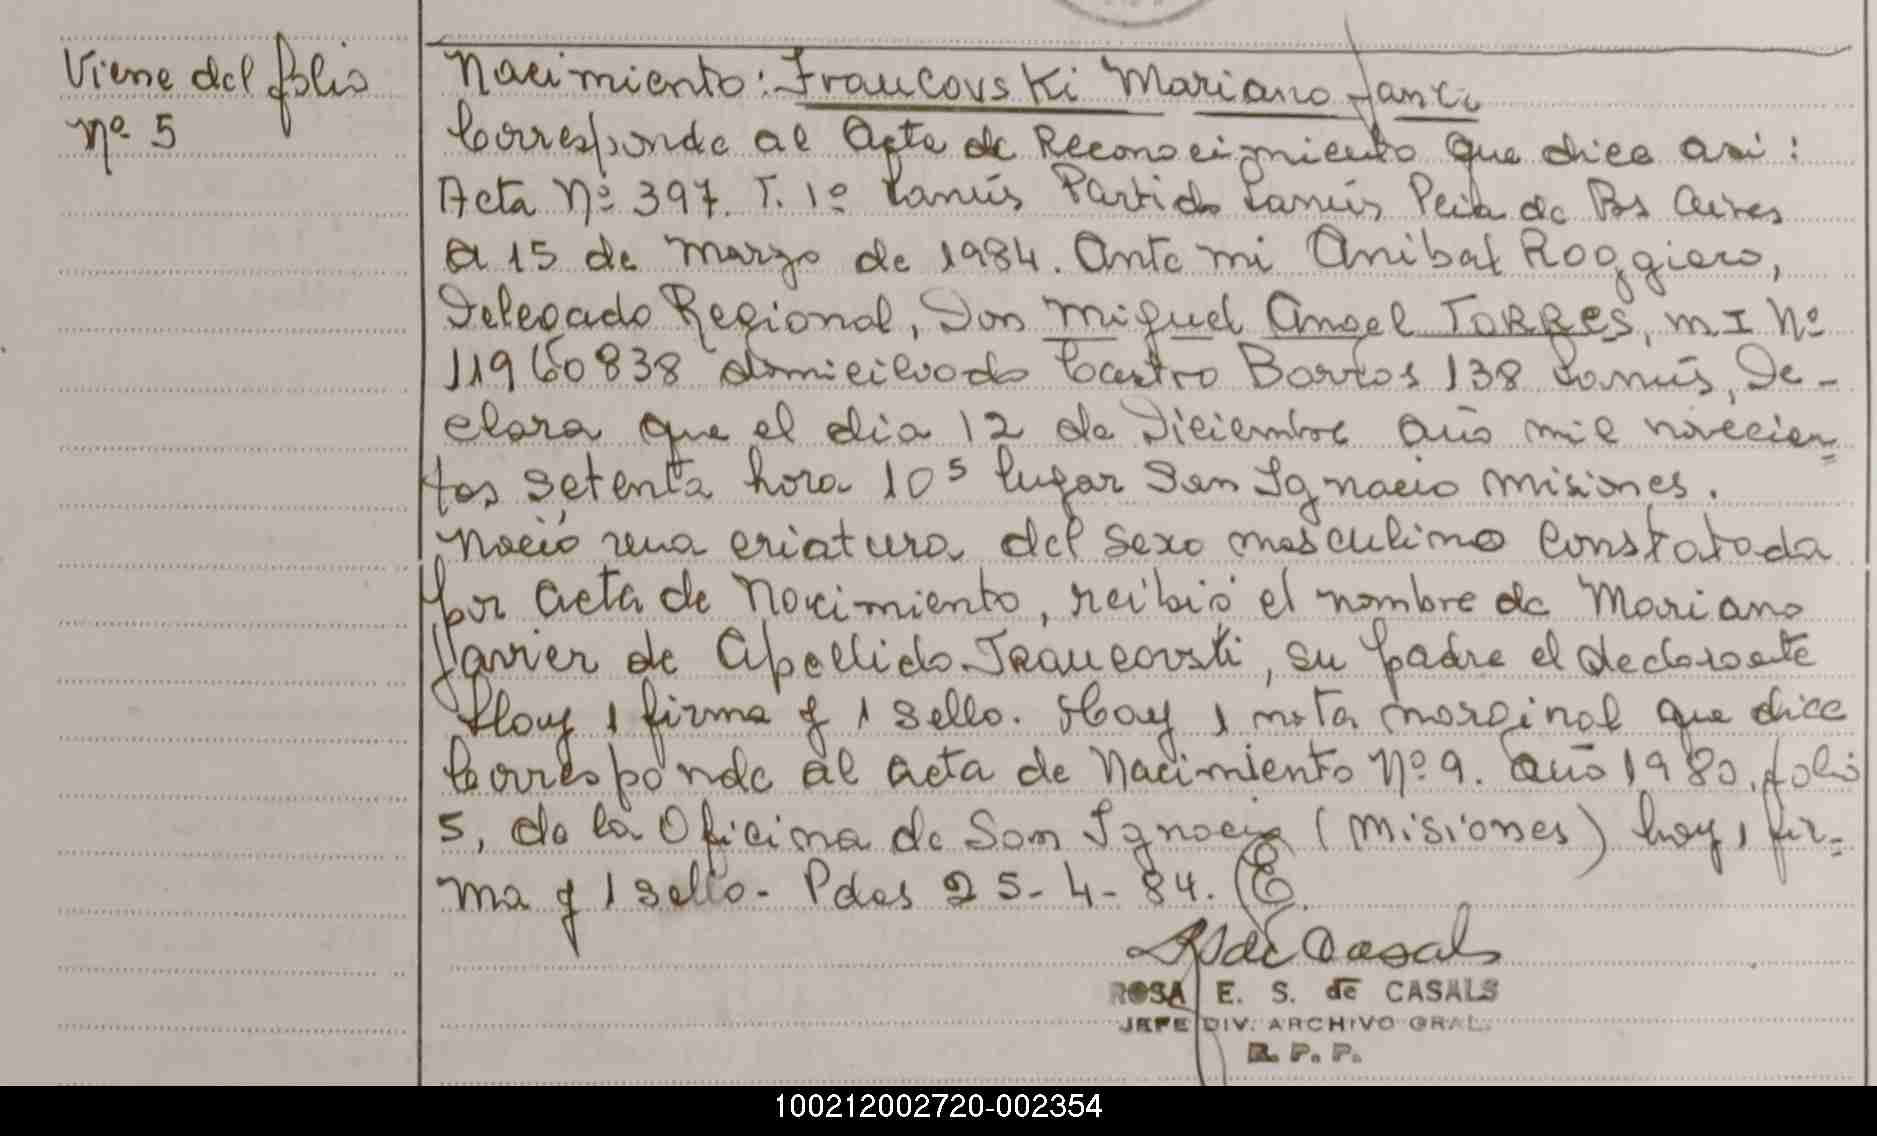 Viene del folio
nº 5
Nacimiento: Fraucovski Mariano
Corresponde al Acta de Reconocimiento que dice asi:
Acta Nº 397. T. 1º Lanús Partido Lanús Pcia de Bs Aires
a 15 de Marzo de 1984. Ante mi Anibal Roggiero,
Delegado Regional, Don Miguel Angel TORRES, M I Nº
11960838 domiciliado Castro Barros 138 Lanús, De-
clara que el dia 12 de Diciembre año mil novecien=
tos setenta hora 10⁵ lugar San Ignacio Misiones.
Nació una criatura del sexo masculino constatada
por acta de Nacimiento, recibió el nombre de Mariano
Javier de Apellido Fraucovski, su padre el declarante
Hay 1 firma y 1 sello. Hay 1 nota marginal que dice
Corresponde al acta de Nacimiento Nº 9. año 1980, folio
5, de la Oficina de San Ignacio (Misiones) hay 1 fir=
ma y 1 sello- Pdas 25-4-84.
de Casals
ROSA E. S. de CASALS
JEFE DIV. ARCHIVO GRAL.
R. P. P.
100212002720-002354